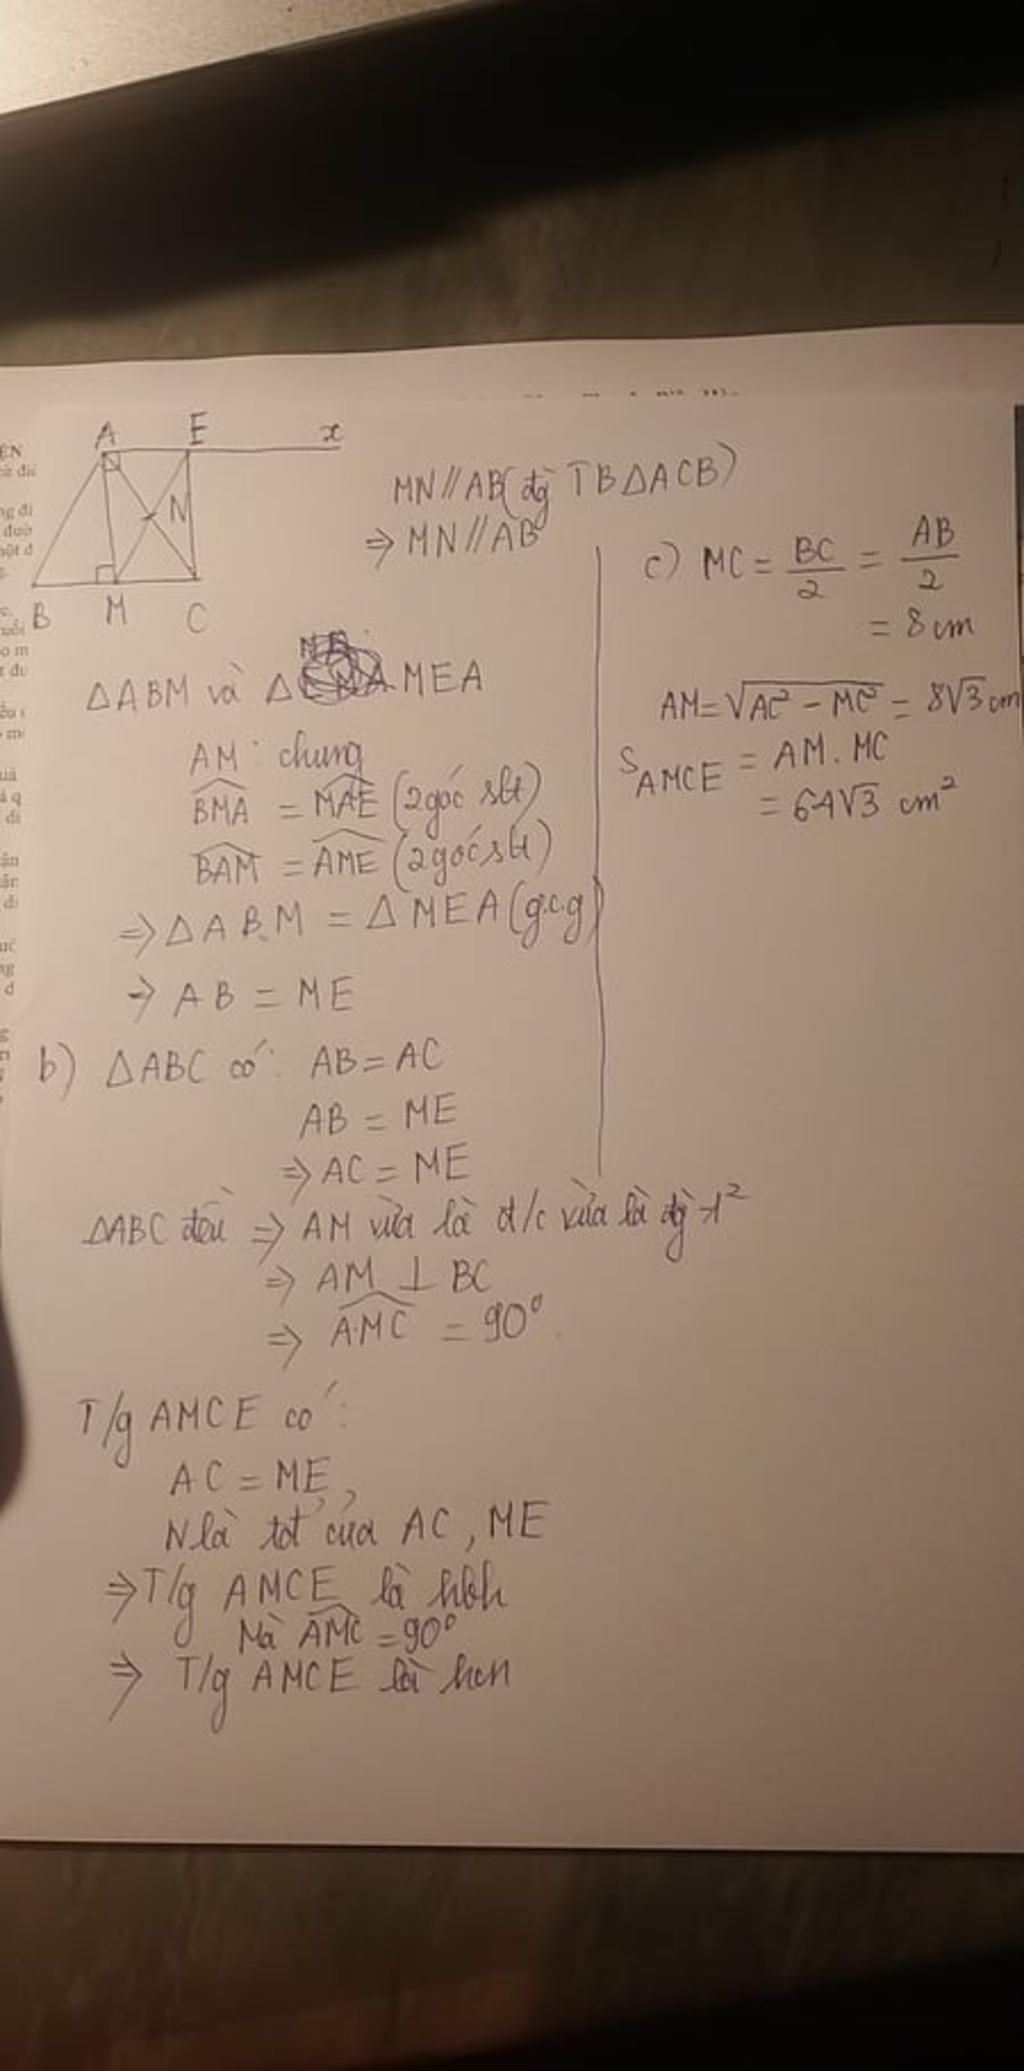 A E x
N
B M C
MN//AB (đg TB ΔACB)
=> MN//AB
ΔABM và Δ MEA
AM: chung
BMA = MAE (2 góc slt)
BAM = AME (2 góc slt)
=> ΔABM = ΔMEA (g.c.g)
=> AB = ME
b) ΔABC có: AB = AC
AB = ME
=> AC = ME
ΔABC đều => AM vừa là đ/c vừa là đg t²
=> AM ⊥ BC
=> AMC = 90°
T/g AMCE có:
AC = ME,
N là tđ của AC, ME
=> T/g AMCE là hbh
Mà AMC = 90°
=> T/g AMCE là hcn
c) MC = BC/2 = AB/2
= 8 cm
AM = √(AC² - MC²) = 8√3 cm
S AMCE = AM . MC
= 64√3 cm²